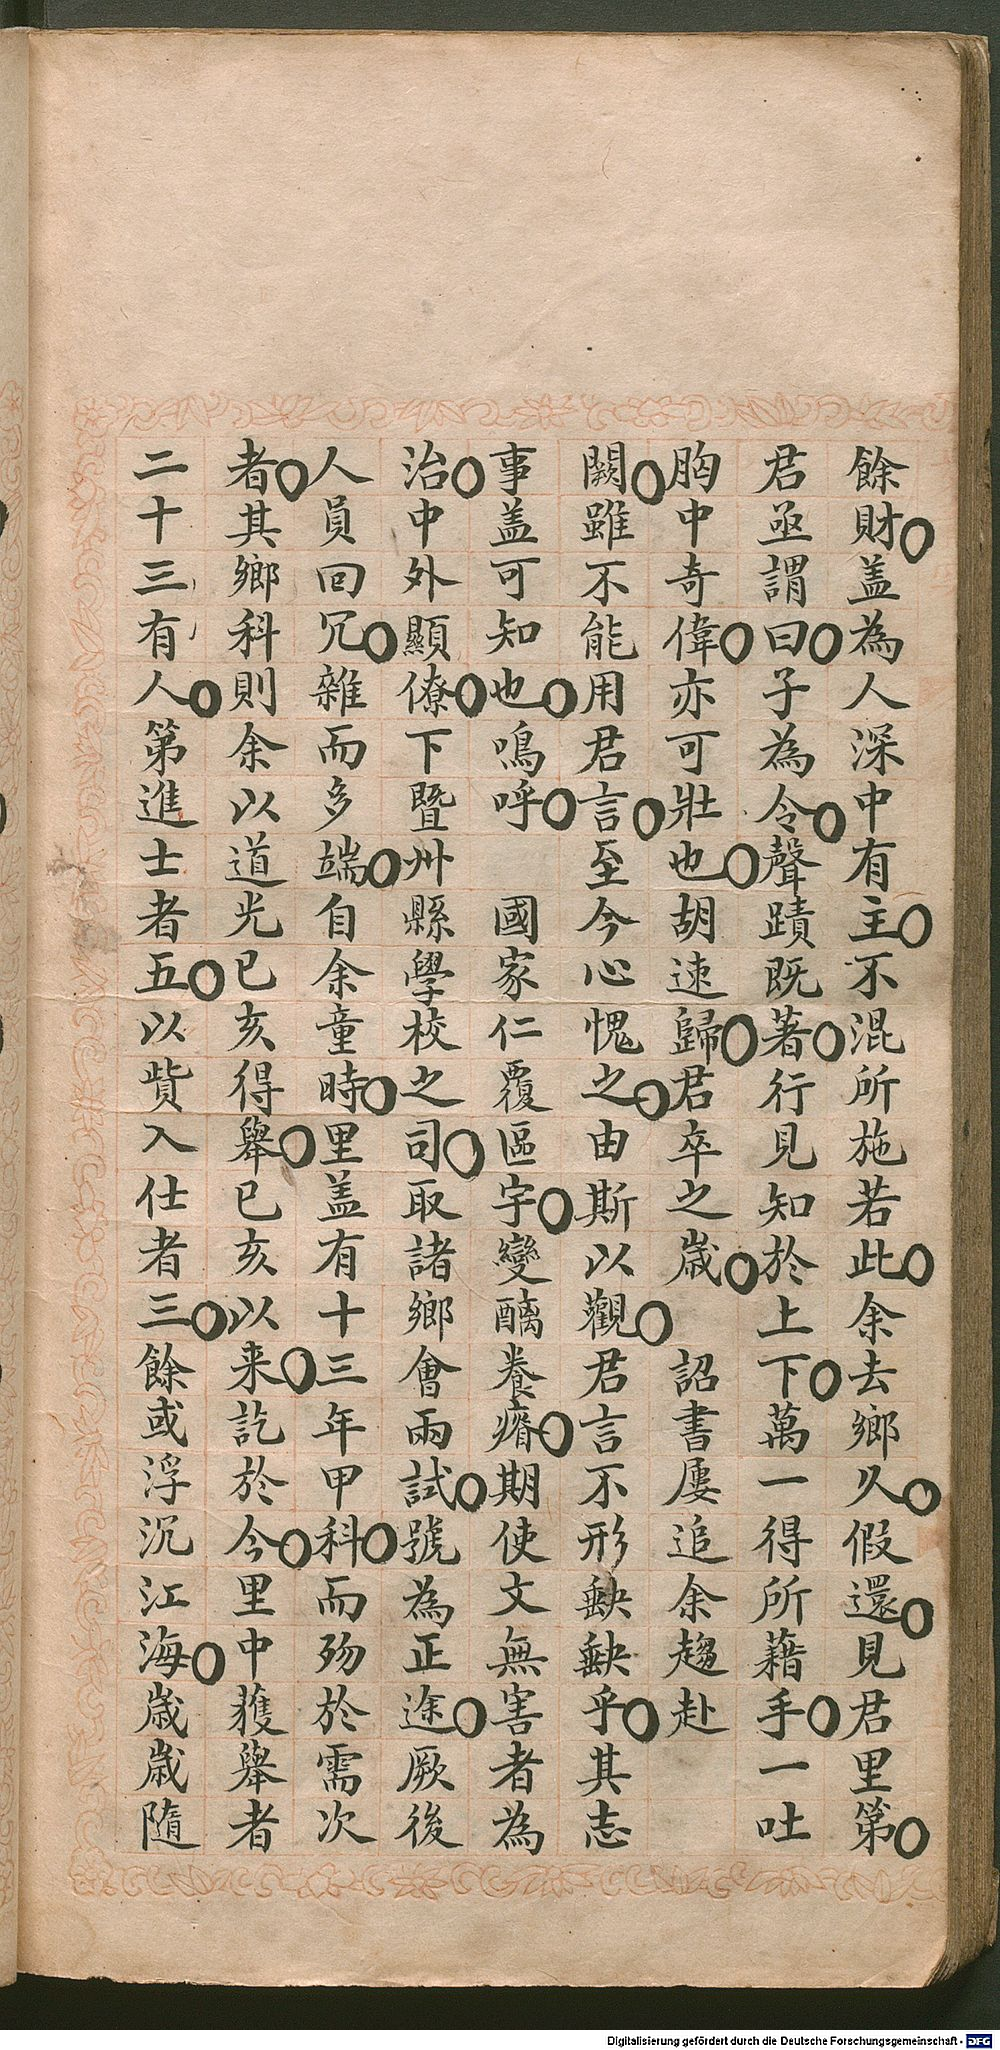 餘財盖為人深中有主不混所施若此余去鄉久假還見君里第
君亟謂曰子為令聲蹟既著行見知於上下萬一得所藉手一吐
胸中奇偉亦可壯也胡速歸君卒之歲 詔書屢追余趨赴
闕雖不能用君言至今心愧之由斯以觀君言不形缺缺乎其志
事盖可知也嗚呼 國家仁覆區宇變醨養瘠期使文無害者為
治中外顯僚下暨州縣學校之司取諸鄉會兩試號為正途厥後
人員回冗雜而多端自余童時里盖有十三年甲科而歿於需次
者其鄉科則余以道光己亥得舉己亥以来訖於今里中獲舉者
二十三有人第進士者五以貲入仕者三餘或浮沉江海歲歲隨
Digitalisierung gefördert durch die Deutsche Forschungsgemeinschaft - DFG